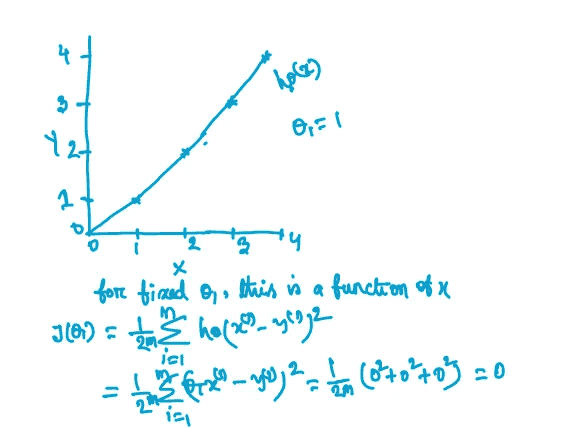 4
3
hθ(x)
θ₁ = 1
Y 2
1
0
0 1 2 3 4
x
for fixed θ₁, this is a function of x
J(θ₁) = 1/2m Σ_{i=1}^{m} hθ(x⁽ⁱ⁾ - y⁽ⁱ⁾)²
= 1/2m Σ_{i=1}^{m} (θ₁x⁽ⁱ⁾ - y⁽ⁱ⁾)² = 1/2m (0² + 0² + 0²) = 0